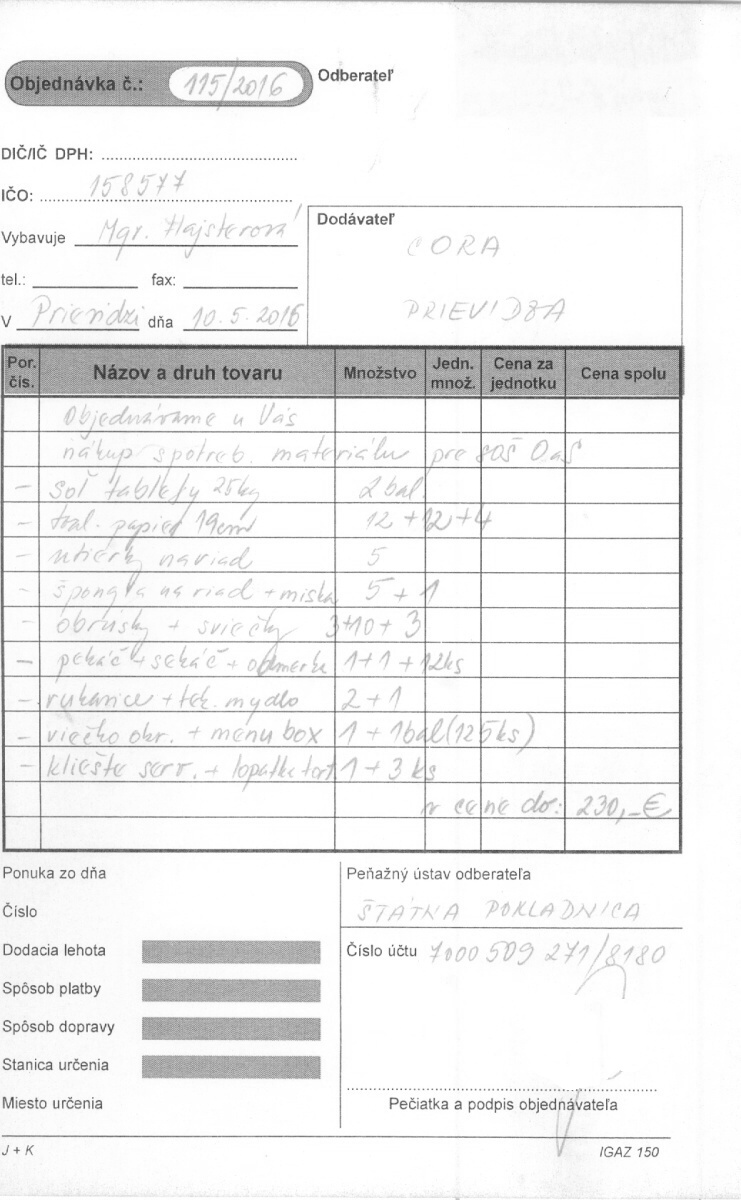 Objednávka č.: 115/2016
Odberateľ
DIČ/IČ DPH:
IČO: 158577
Vybavuje Mgr. Hajsterová
tel.: fax:
V Prievidzi dňa 10.5.2016
Dodávateľ
CORA
PRIEVIDZA
Por. čís. Názov a druh tovaru Množstvo Jedn. množ. Cena za jednotku Cena spolu
Objednávame u Vás
nákup spotreb. materiálu pre SOŠ OaS
- soľ tablety 25kg 2 bal.
- toal. papier 19cm 12+12+4
- utierky na riad 5
- špongia na riad + miska 5 + 1
- obrúsky + sviečky 3+10+3
- pekáč + sekáč + odmerka 1+1+12ks
- rukavice + tek. mydlo 2+1
- viečko okr. + menu box 1 + 1bal(125ks)
- kliešte serv. + lopatka tort 1+3 ks
v cene do: 230,-€
Ponuka zo dňa
Číslo
Dodacia lehota
Spôsob platby
Spôsob dopravy
Stanica určenia
Miesto určenia
Peňažný ústav odberateľa
ŠTÁTNA POKLADNICA
Číslo účtu 7000 509 271/8180
Pečiatka a podpis objednávateľa
J + K
IGAZ 150